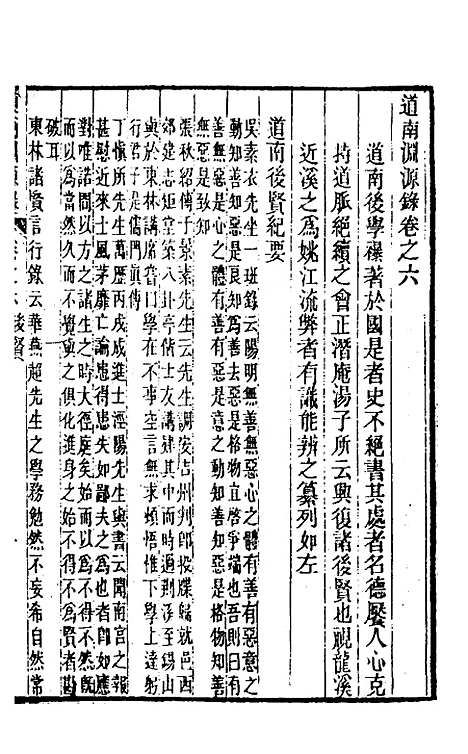 道南淵源錄卷之六
道南後學襮著於國是者史不絕書其處者名德饜人心克
持道脈絕續之會正潛庵湯子所云興復諸後賢也視龍溪
近溪之爲姚江流弊者有識能辨之纂列如左
道南後賢紀要
吳素衣先生一班錄云陽明無善無惡心之體有善有惡意之
動知善知惡是良知爲善去惡是格物宜啓爭端也吾則曰有善
無惡是心之體有善有惡是意之動知善知惡是格物知善
無惡是致知
張秋紹傳子景素先生云先生調安吉州判郎投牒歸就邑西
郊建志矩堂築八卦亭偕士友講肄其中而時過荆溪至錫山
與於東林講席嘗曰學在不事空言無求頓悟惟下學上達躬
行君子是儒門眞傳
丁愼所先生萬歷丙戌成進士涇陽先生與書云聞南宮之報
甚慰近來士風茅靡亡論患得患失如鄙夫之爲也者卽如廷
對唯諾間以方之諸生之時大徑庭矣始而以爲不得不然旣
而以爲當然以爲當然則與之俱化進身之始不得不爲賢者勘
破耳
東林諸賢言行錄云華燕超先生之學務勉然不妄希自然常
卷之六 後賢